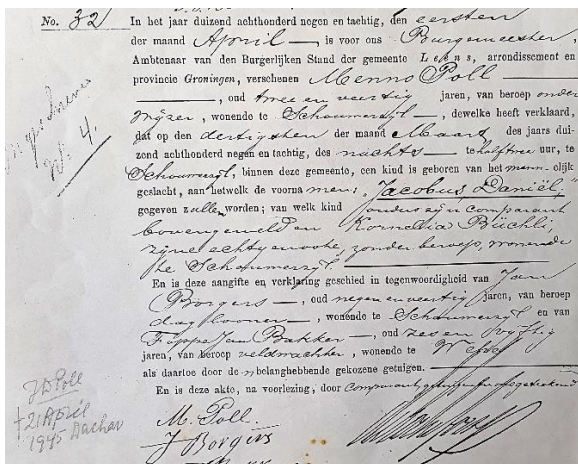 No. 32
In het jaar duizend achthonderd negen en tachtig, den eersten
der maand April — is voor ons Burgemeester,
Ambtenaar van den Burgerlijken Stand der gemeente Leens, arrondissement en
provincie Groningen, verschenen Menno Poll
, oud twee en veertig jaren, van beroep onder
wijzer, wonende te Schouwerzijl, dewelke heeft verklaard,
dat op den dertigsten der maand Maart des jaars dui-
zend achthonderd negen en tachtig, des nachts — te half twee uur, te
Schouwerzijl, binnen deze gemeente, een kind is geboren van het mannelijk
geslacht, aan hetwelk de voornamen: Jacobus Daniël,
gegeven zullen worden; van welk kind ouders zijn comparant
bovengemeld en Kornelia Büchli,
zijne echtgenoote, zonder beroep, wonende
te Schouwerzijl.
En is deze aangifte en verklaring geschied in tegenwoordigheid van Jan
Borgers —, oud negen en veertig jaren, van beroep
daglooner —, wonende te Schouwerzijl en van
Jan Bakker —, oud zes en vijftig
jaren, van beroep veldwachter, wonende te
als daartoe door de n belanghebbende gekozene getuigen.
En is deze akte, na voorlezing, door comparant, getuigen en ons geteekend
M. Poll
J Borgers
No 4.
JD Poll
† 21 April
1945 Dachau